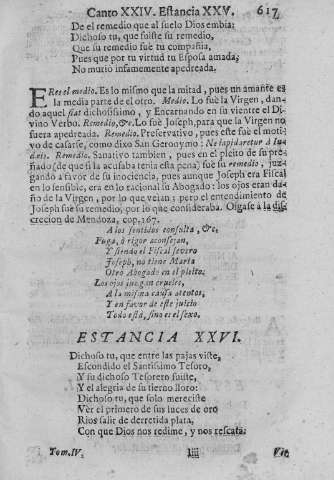 Canto XXIV. Estancia XXV. 617
De el remedio que al suelo Dios embia:
Dichoso tu, que fuiste su remedio,
Que su remedio fuè tu compañia,
Pues que por tu virtud tu Esposa amada,
No muriò infamemente apedreada.
ERes el medio. Es lo mismo que la mitad, pues un amante es
la media parte de el otro. Medio. Lo fuè la Virgen, dan-
do aquel fiat dichosissimo, y Encarnando en su vientre el Di-
vino Verbo. Remedio, &c. Lo fuè Joseph, para que la Virgen no
fuera apedreada. Remedio. Preservativo, pues este fuè el moti-
vo de casarse, como dixo San Geronymo: Ne lapidaretur à Iu-
dæis. Remedio. Sanativo tambien, pues en el pleito de su pre-
ñado (de que si la acusaba tenia esta pena) fuè su remedio, juz-
gando à favor de su inocencia, pues aunque Joseph era Fiscal
en lo sensible, era en lo racional su Abogado: los ojos eran da-
ño de la Virgen, por lo que veian; pero el entendimiento de
Joseph fuè su remedio, por lo que consideraba. Oigase à la dis-
crecion de Mendoza, cop. 167.
A los sentidos consulta, &c.
Fuga, ò rigor aconsejan,
Y siendo el Fiscal severo
Joseph, no tiene Maria
Otro Abogado en el pleito:
Los ojos juzgan crueles,
A la misma causa atentos,
Y en favor de este juicio
Todo està, sino es el sexo.
ESTANCIA XXVI.
Dichoso tu, que entre las pajas viste,
Escondido el Santissimo Tesoro,
Y su dichoso Tesorero fuiste,
Y el alegria de su tierno lloro:
Dichoso tu, que solo mereciste
Ver el primero de sus luces de oro
Rios salir de derretida plata,
Con que Dios nos redime, y nos rescata.
Tom. IV. Iiii Vir